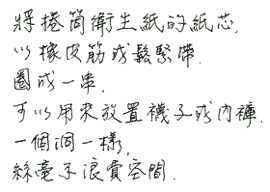 將捲筒衛生紙的紙芯,
以橡皮筋或鬆緊帶
圈成一串,
可以用來放置襪子或內褲.
一個洞一樣,
絲毫不浪費空間.